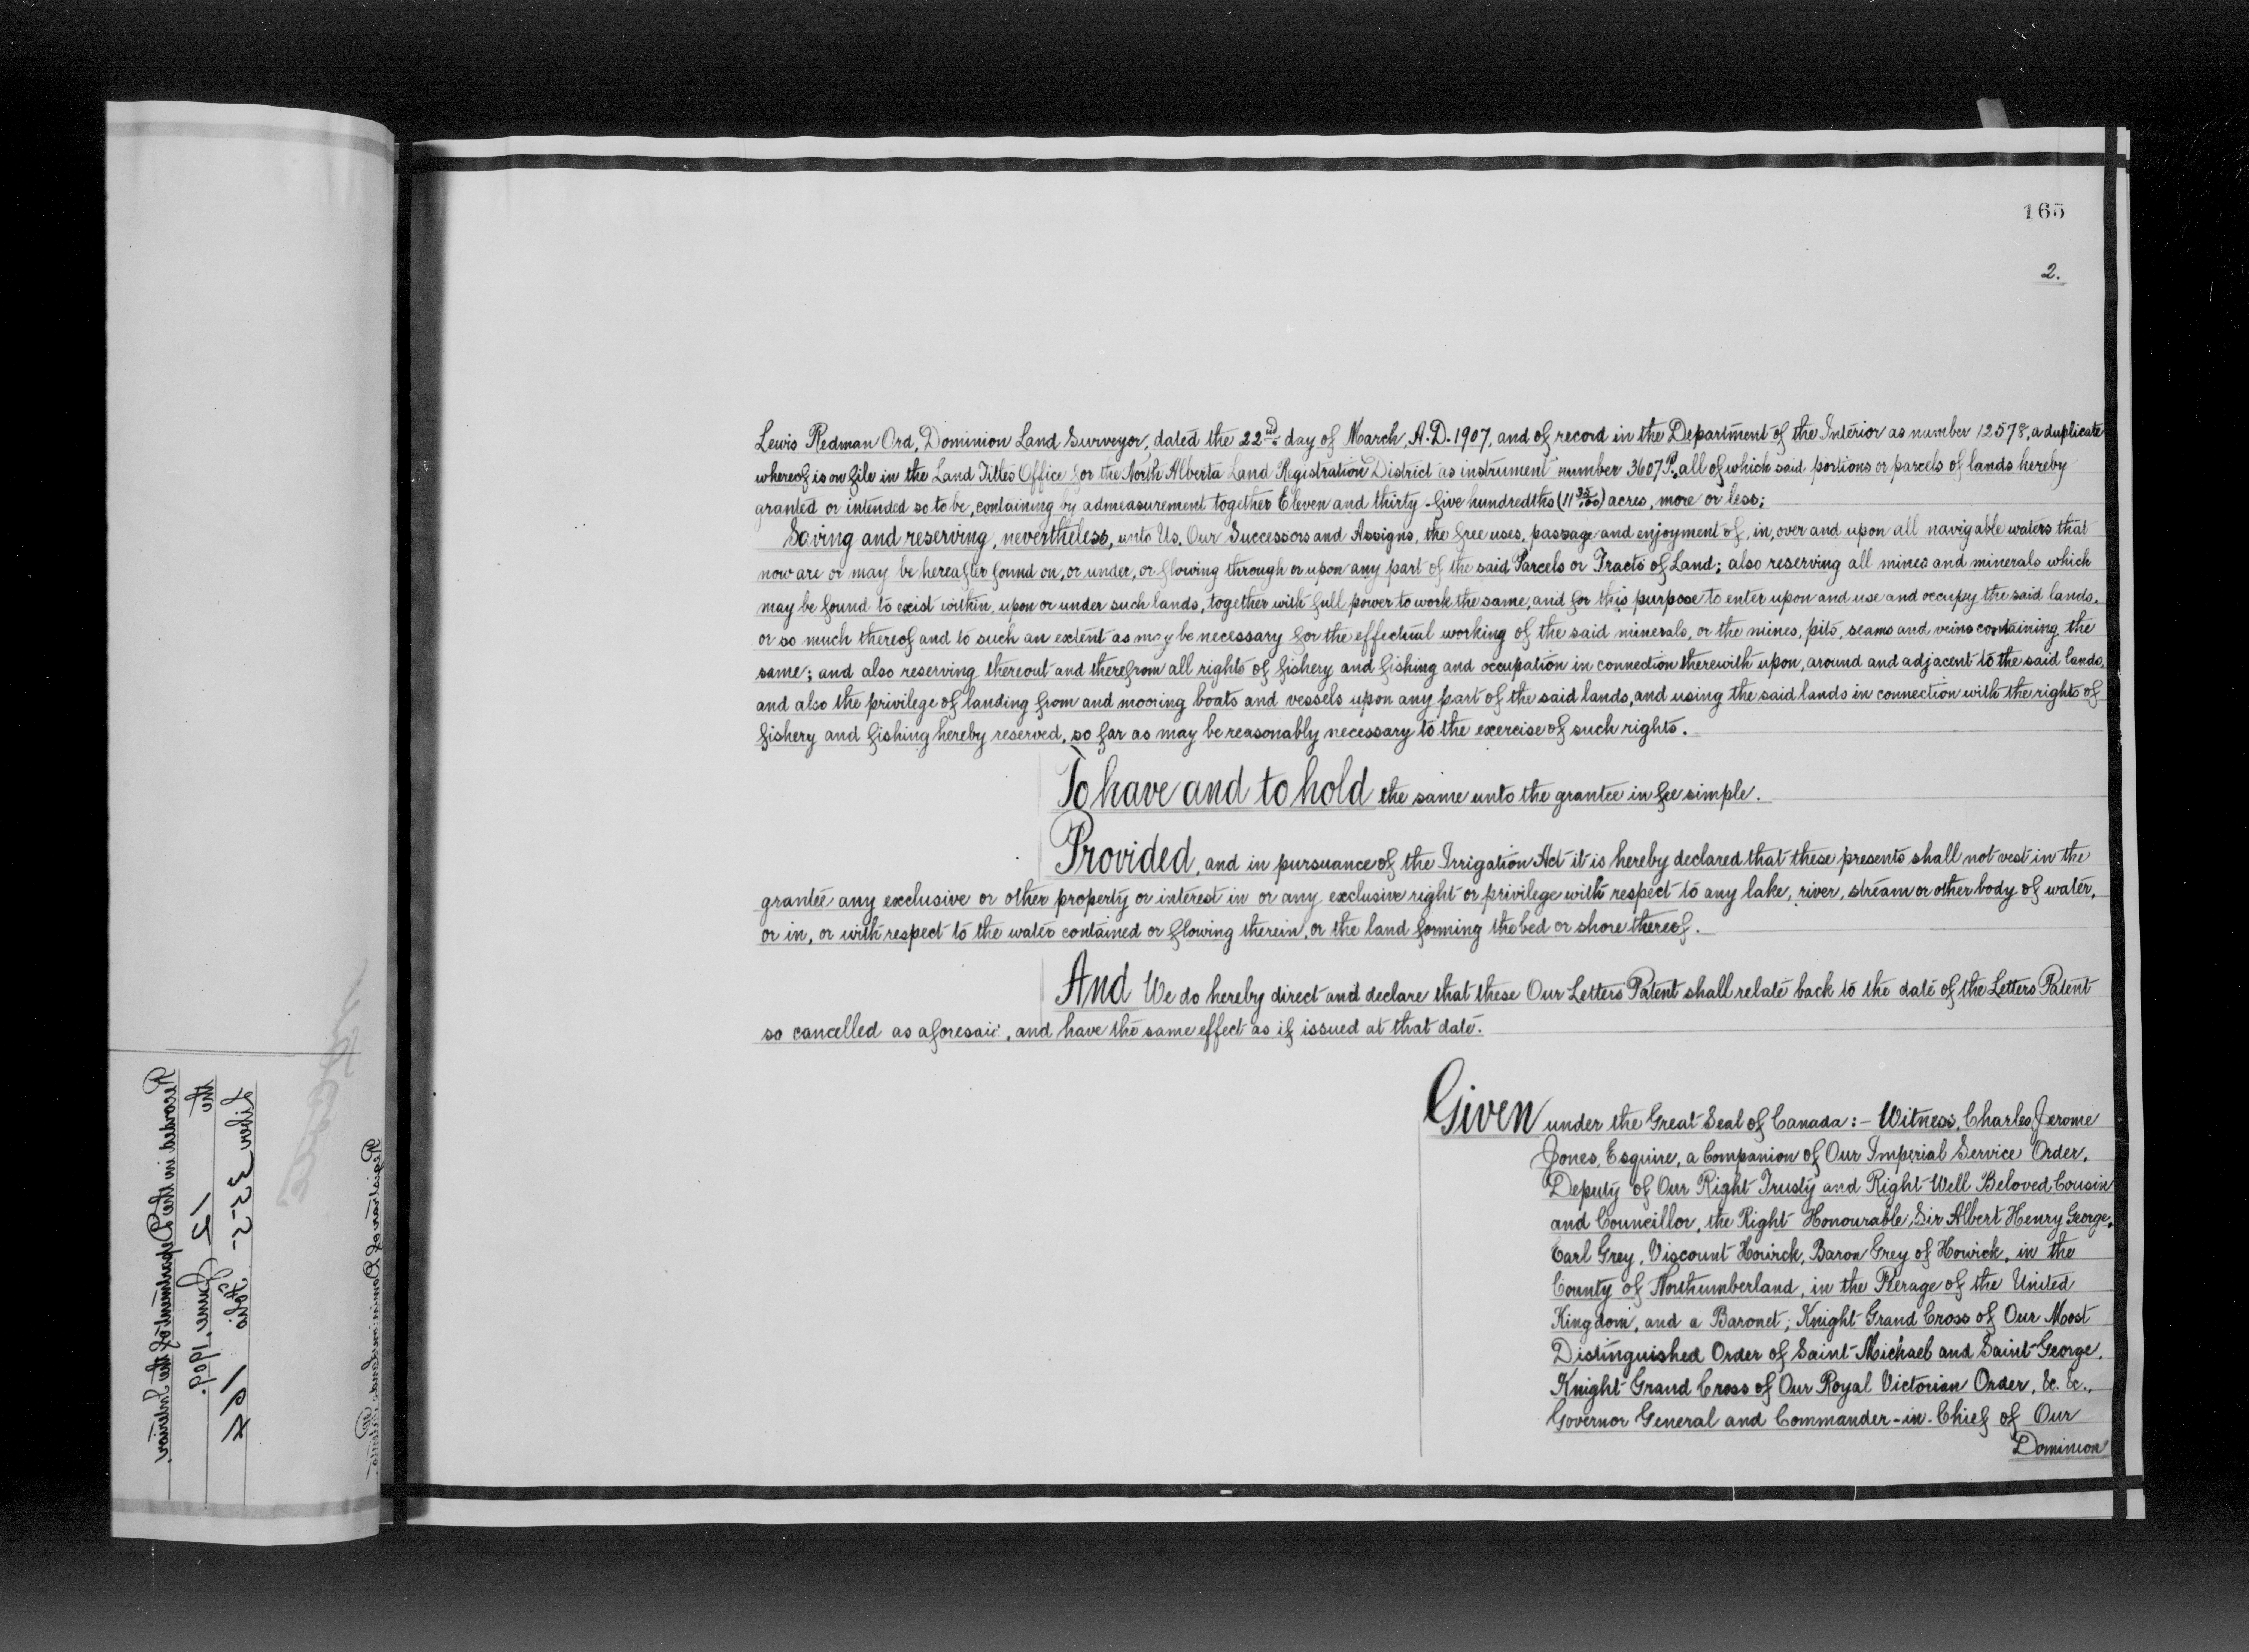 165
2.
Lewis Redman Ord, Dominion Land Surveyor, dated the 22nd day of March, A.D. 1907, and of record in the Department of the Interior as number 12578, a duplicate
whereof is on file in the Land Titles Office for the North Alberta Land Registration District as instrument number 3607 P., all of which said portions or parcels of lands hereby
granted or intended so to be, containing by admeasurement together Eleven and thirty-five hundredths (11 35/100) acres, more or less;
Saving and reserving, nevertheless, unto Us, Our Successors and Assigns, the free uses, passage and enjoyment of, in, over and upon all navigable waters that
now are or may be hereafter found on, or under, or flowing through or upon any part of the said Parcels or Tracts of Land; also reserving all mines and minerals which
may be found to exist within, upon or under such lands, together with full power to work the same, and for this purpose to enter upon and use and occupy the said lands,
or so much thereof and to such an extent as may be necessary for the effectual working of the said minerals, or the mines, pits, seams and veins containing the
same; and also reserving thereout and therefrom all rights of fishery and fishing and occupation in connection therewith upon, around and adjacent to the said lands,
and also the privilege of landing from and mooring boats and vessels upon any part of the said lands, and using the said lands in connection with the rights of
fishery and fishing hereby reserved, so far as may be reasonably necessary to the exercise of such rights.
To have and to hold the same unto the grantee in fee simple.
Provided, and in pursuance of the Irrigation Act it is hereby declared that these presents shall not vest in the
grantee any exclusive or other property or interest in or any exclusive right or privilege with respect to any lake, river, stream or other body of water,
or in, or with respect to the water contained or flowing therein, or the land forming the bed or shore thereof.
And We do hereby direct and declare that these Our Letters Patent shall relate back to the date of the Letters Patent
so cancelled as aforesaid, and have the same effect as if issued at that date.
Given under the Great Seal of Canada:- Witness, Charles Jerome
Jones, Esquire, a Companion of Our Imperial Service Order,
Deputy of Our Right Trusty and Right Well Beloved Cousin
and Councillor, the Right Honourable Sir Albert Henry George,
Earl Grey, Viscount Howick, Baron Grey of Howick, in the
County of Northumberland, in the Peerage of the United
Kingdom, and a Baronet; Knight Grand Cross of Our Most
Distinguished Order of Saint Michael and Saint George,
Knight Grand Cross of Our Royal Victorian Order, &c. &c.,
Governor General and Commander-in-Chief of Our
Dominion
Recorded in the Department of the Interior
the 12 June, 1909.
Liber 355 Folio 164
Registrar of Dominion Lands Patents.